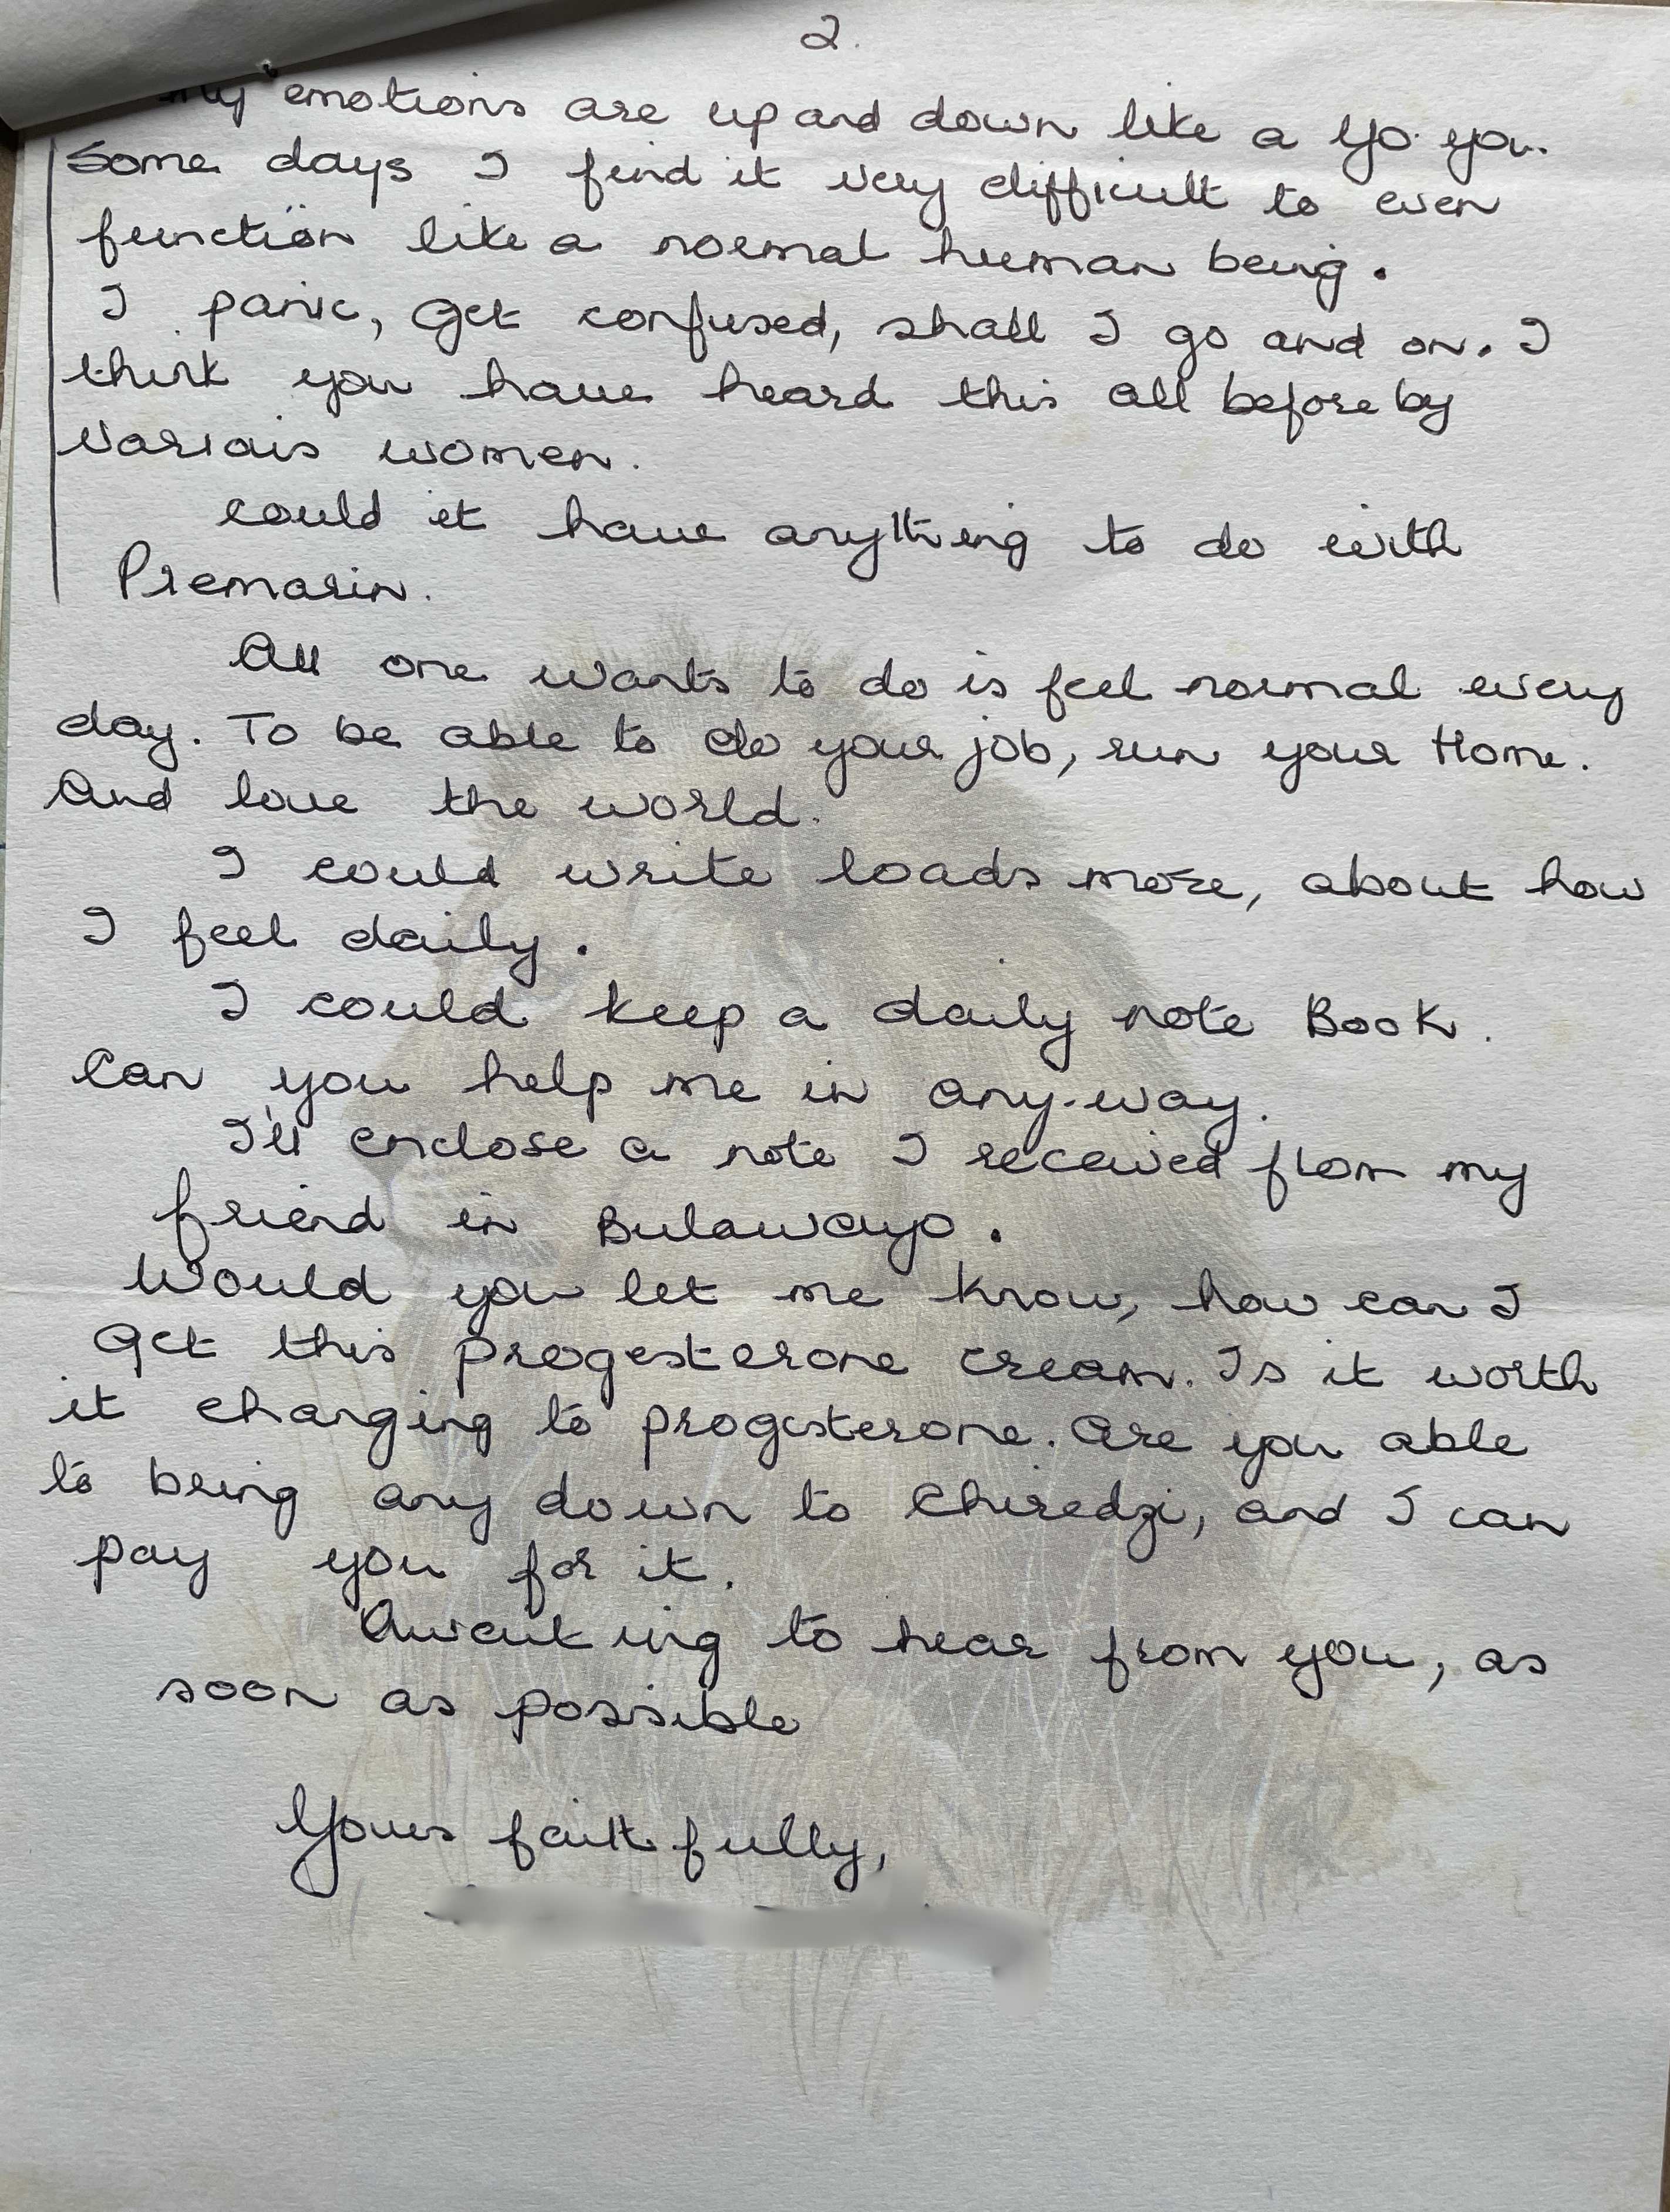 2.
My emotions are up and down like a yo you.
Some days I find it very difficult to even
function like a normal human being.
I panic, get confused, shall I go and on. I
think you have heard this all before by
various women.
could it have anything to do with
Premarin.
All one wants to do is feel normal every
day. To be able to do your job, run your Home.
And love the world.
I could write loads more, about how
I feel daily.
I could keep a daily note Book.
Can you help me in any-way.
I'll enclose a note I received from my
friend in Bulawayo.
Would you let me know, how can I
get this progesterone cream. Is it worth
it changing to progesterone. Are you able
to bring any down to Chiredzi, and I can
pay you for it.
Awaiting to hear from you, as
soon as possible
Yours faithfully,